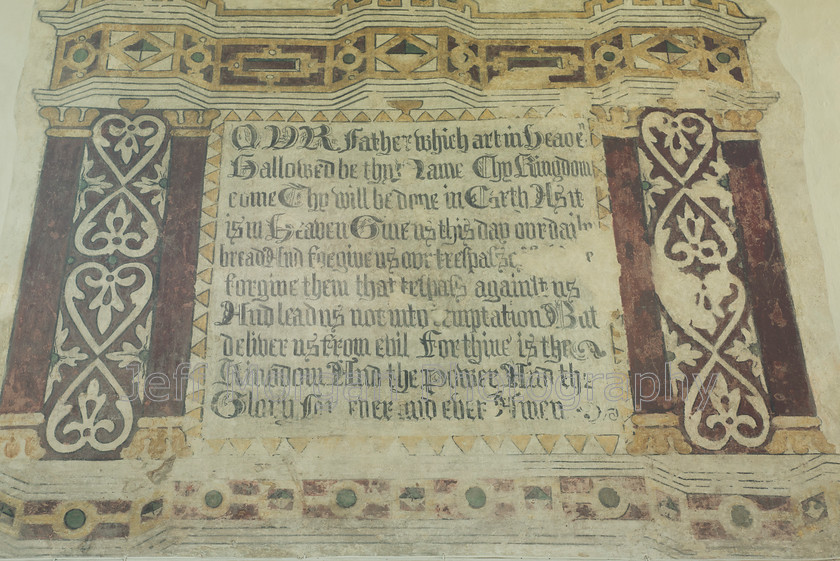 OVR Father which art in Heavē
Hallowed be thy Name Thy Kingdom
come Thy will be done in Earth As it
is in Heaven Give us this day our daily
bread And forgive us our trespasse
forgive them that trespass against us
And lead us not into temptation But
deliver us from evil For thine is the
Kingdom And the power And the
Glory For ever and ever Amen
Jeff Morgan Photography